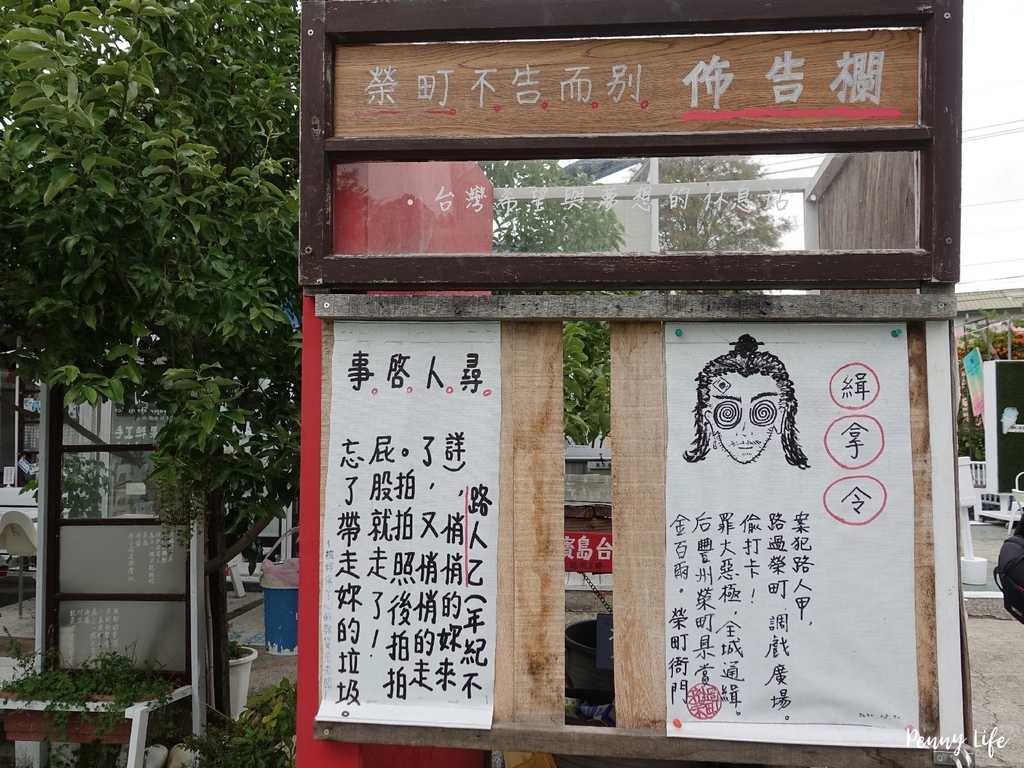 榮町不告而別 佈告欄
·台灣希望與夢想的休息站
尋人啓事
路人乙(年紀不
詳),悄悄的妳來
了,又悄悄的走
。拍拍照後拍拍
屁股就走了!
忘了帶走妳的垃圾。
緝
拿
令
案犯路人甲,
路過榮町,調戲廣場。
偷打卡!
罪大惡極,全城通緝。
后豐州榮町県賞
金百兩。榮町衙門
寶島台
Penny Life